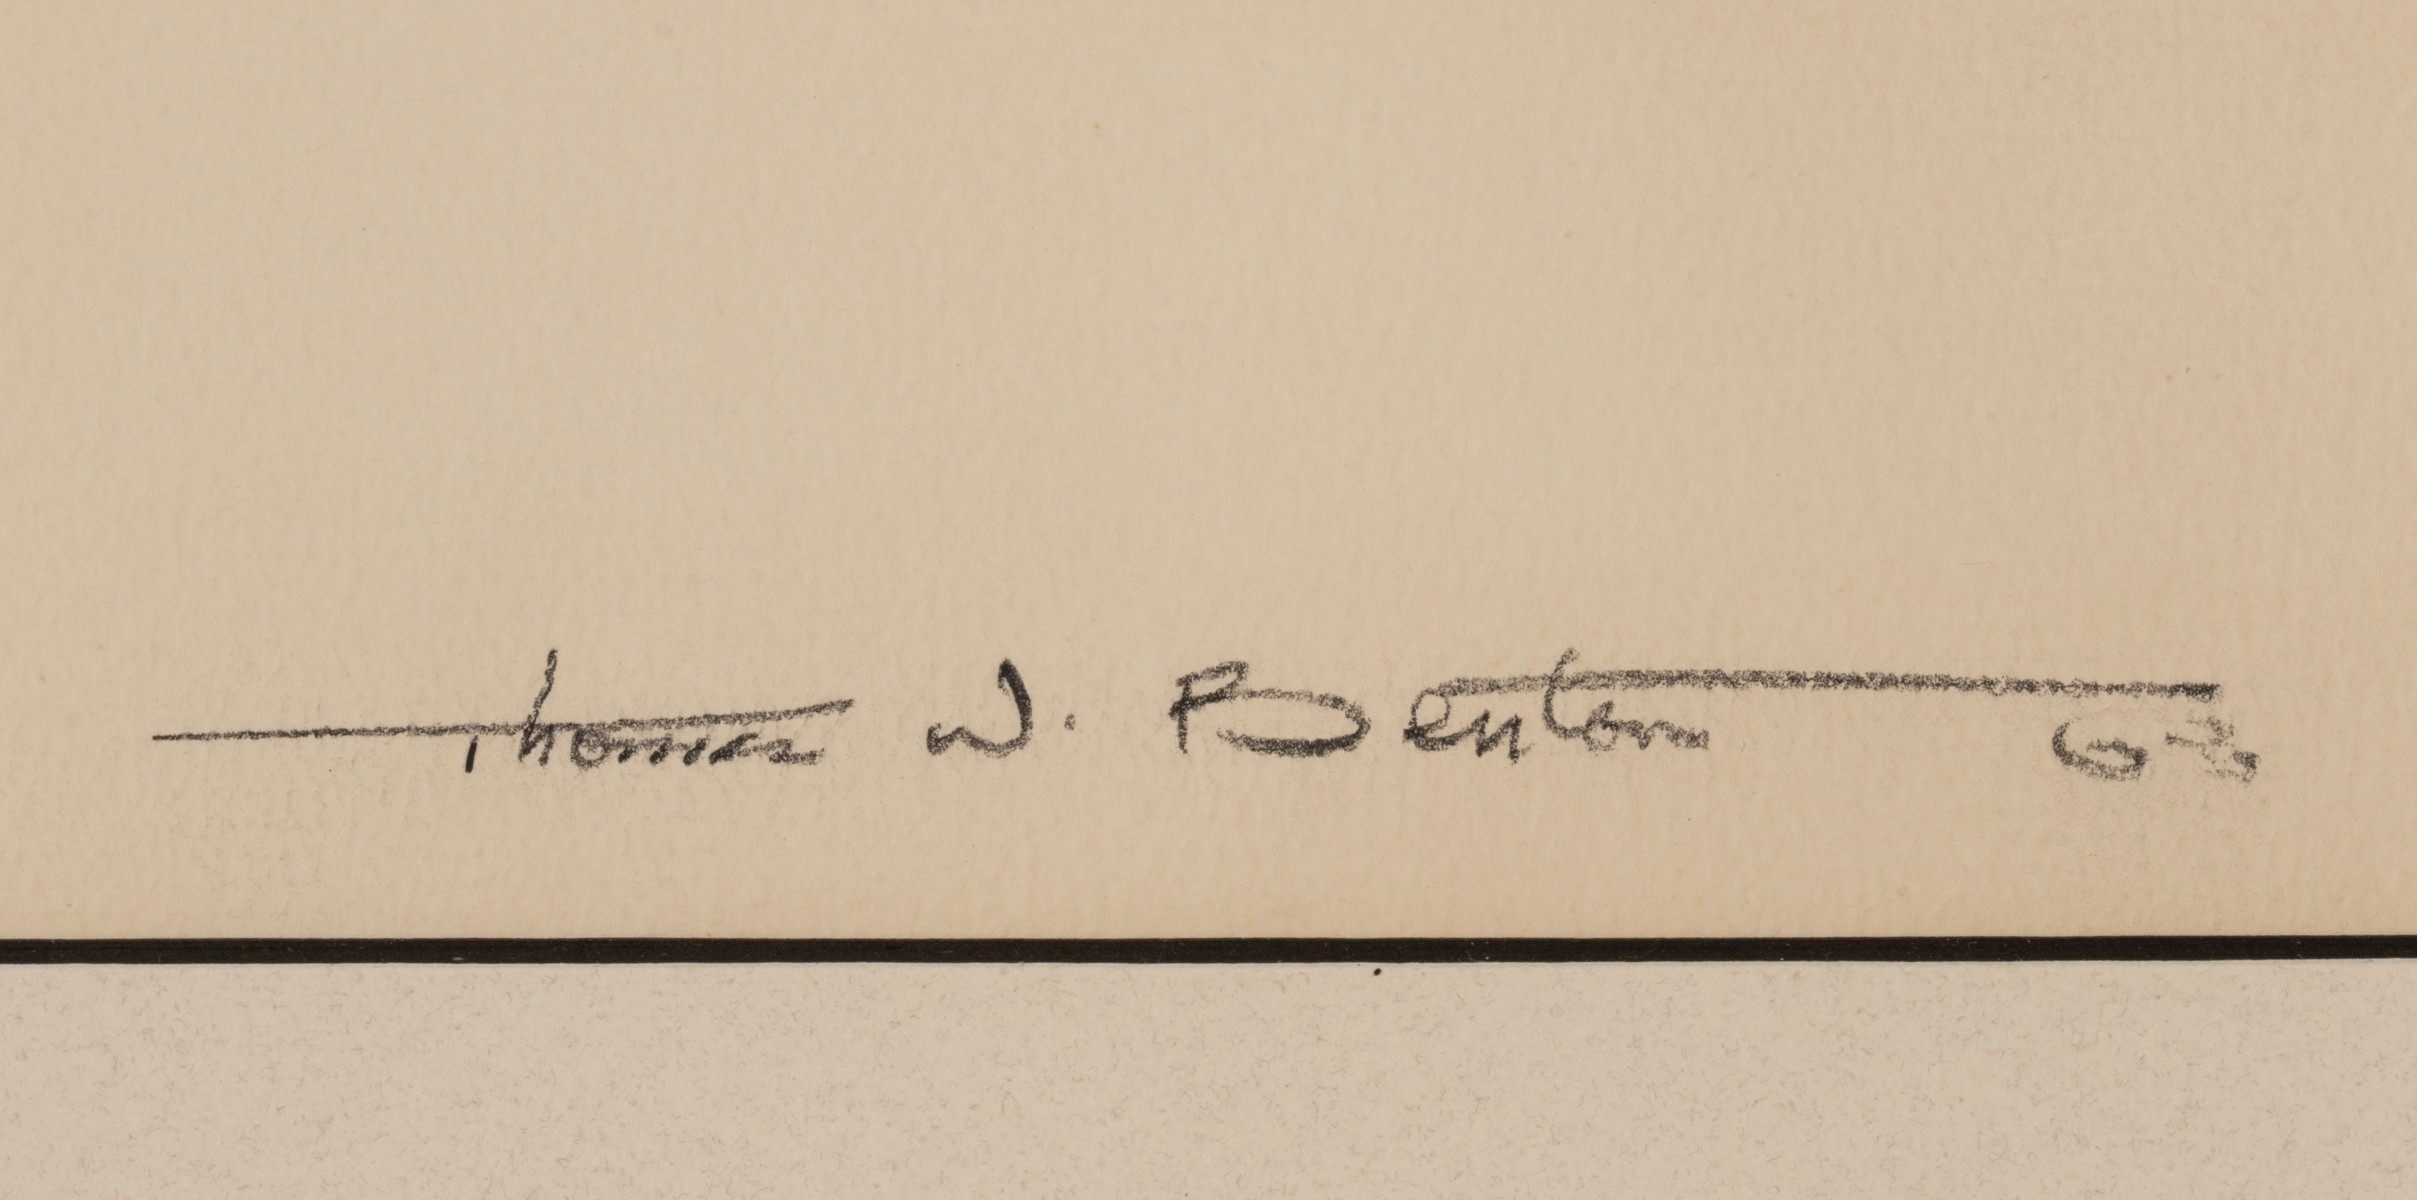 Thomas W. Benton 63